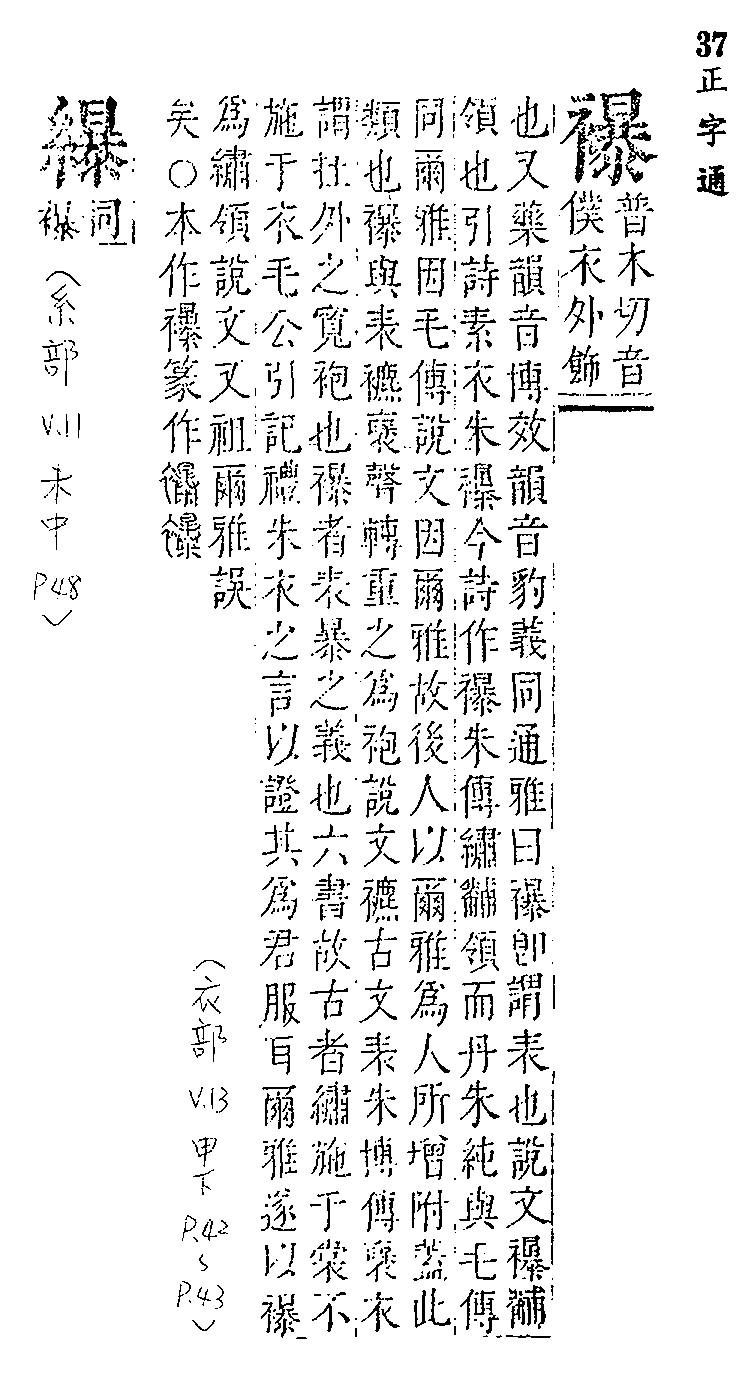 37 正字通
襮 普木切音
僕衣外飾
也又藥韻音博效韻音豹義同通雅曰襮即謂表也說文襮黼
領也引詩素衣朱襮今詩作襮朱傳繡黼領而丹朱純與毛傳
同爾雅因毛傳說文因爾雅故後人以爾雅為人所增附蓋此
類也襮與表襛裦聲轉重之為袍說文襛古文表朱博傳裦衣
謂在外之寬袍也襮者表暴之義也六書故古者繡施于裳不
施于衣毛公引記禮朱衣之言以證其為君服耳爾雅遂以襮
為繡領說文又祖爾雅誤
矣○本作襮篆作
(衣部 V.13 甲下 P.42~P.43)
同
襮
(糸部 V.11 未中 P.48)